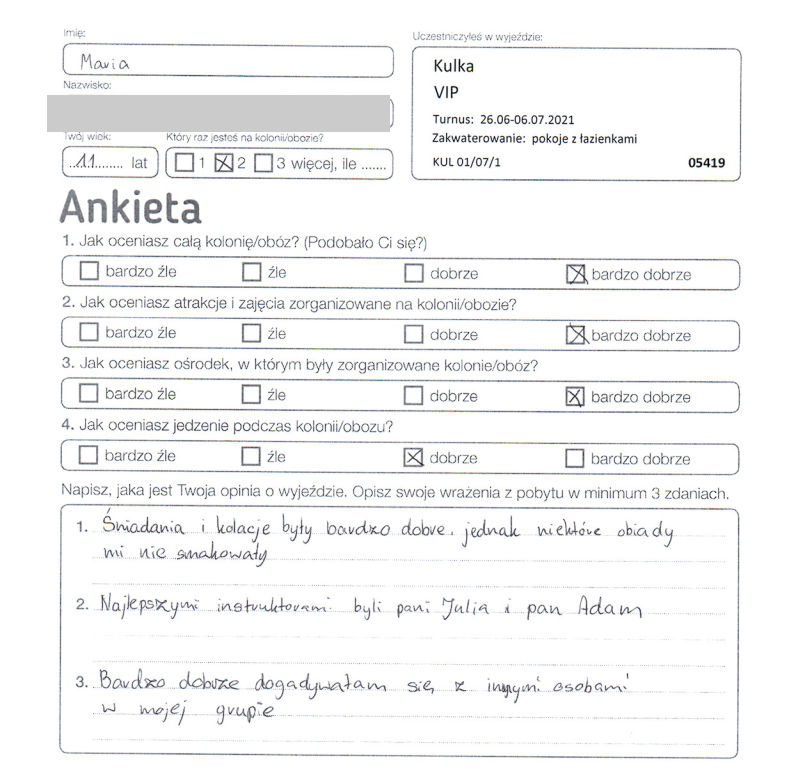 Imię:
Uczestniczyłeś w wyjeździe:
Maria
Kulka
VIP
Nazwisko:
Turnus: 26.06-06.07.2021
Zakwaterowanie: pokoje z łazienkami
KUL 01/07/1 05419
Twój wiek: Który raz jesteś na kolonii/obozie?
...11........ lat 1 2 3 więcej, ile .......
Ankieta
1. Jak oceniasz całą kolonię/obóz? (Podobało Ci się?)
bardzo źle źle dobrze bardzo dobrze
2. Jak oceniasz atrakcje i zajęcia zorganizowane na kolonii/obozie?
bardzo źle źle dobrze bardzo dobrze
3. Jak oceniasz ośrodek, w którym były zorganizowane kolonie/obóz?
bardzo źle źle dobrze bardzo dobrze
4. Jak oceniasz jedzenie podczas kolonii/obozu?
bardzo źle źle dobrze bardzo dobrze
Napisz, jaka jest Twoja opinia o wyjeździe. Opisz swoje wrażenia z pobytu w minimum 3 zdaniach.
1. Śniadania i kolacje były bardzo dobre. jednak niektóre obiady
mi nie smakowały
2. Najlepszymi instruktorami byli pani Julia i pan Adam
3. Bardzo dobrze dogadywałam się z innymi osobami
w mojej grupie